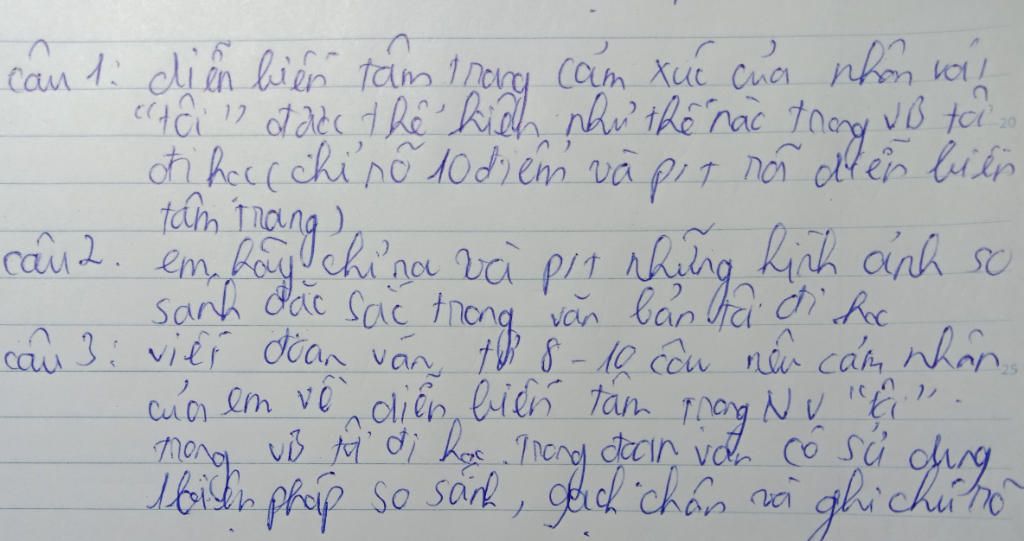 câu 1: diễn biến tâm trạng cảm xúc của nhân vật
"tôi" được thể hiện như thế nào trong VB tôi 20
đi học (chỉ rõ 10 điểm và p/t rõ diễn biến
tâm trạng)
câu 2. em hãy chỉ ra và p/t những hình ảnh so
sánh đặc sắc trong văn bản tôi đi học
câu 3: viết đoạn văn từ 8-10 câu nêu cảm nhận 25
của em về diễn biến tâm trạng NV "tôi".
trong VB tôi đi học. Trong đoạn văn có sử dụng
1 biện pháp so sánh, gạch chân và ghi chú rõ